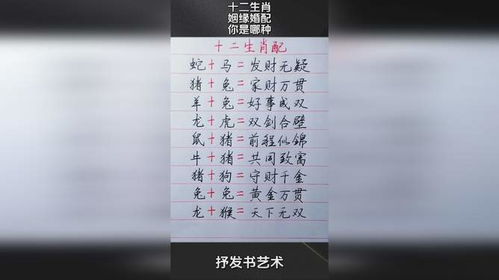 十二生肖
姻缘婚配
你是哪种
十二生肖配
蛇+马=发财无疑
猪+兔=家财万贯
羊+兔=好事成双
龙+虎=双剑合壁
鼠+猪=前程似锦
牛+猪=共同致富
猪+狗=守财千金
兔+兔=黄金万贯
龙+猴=天下无双
抒发书艺术